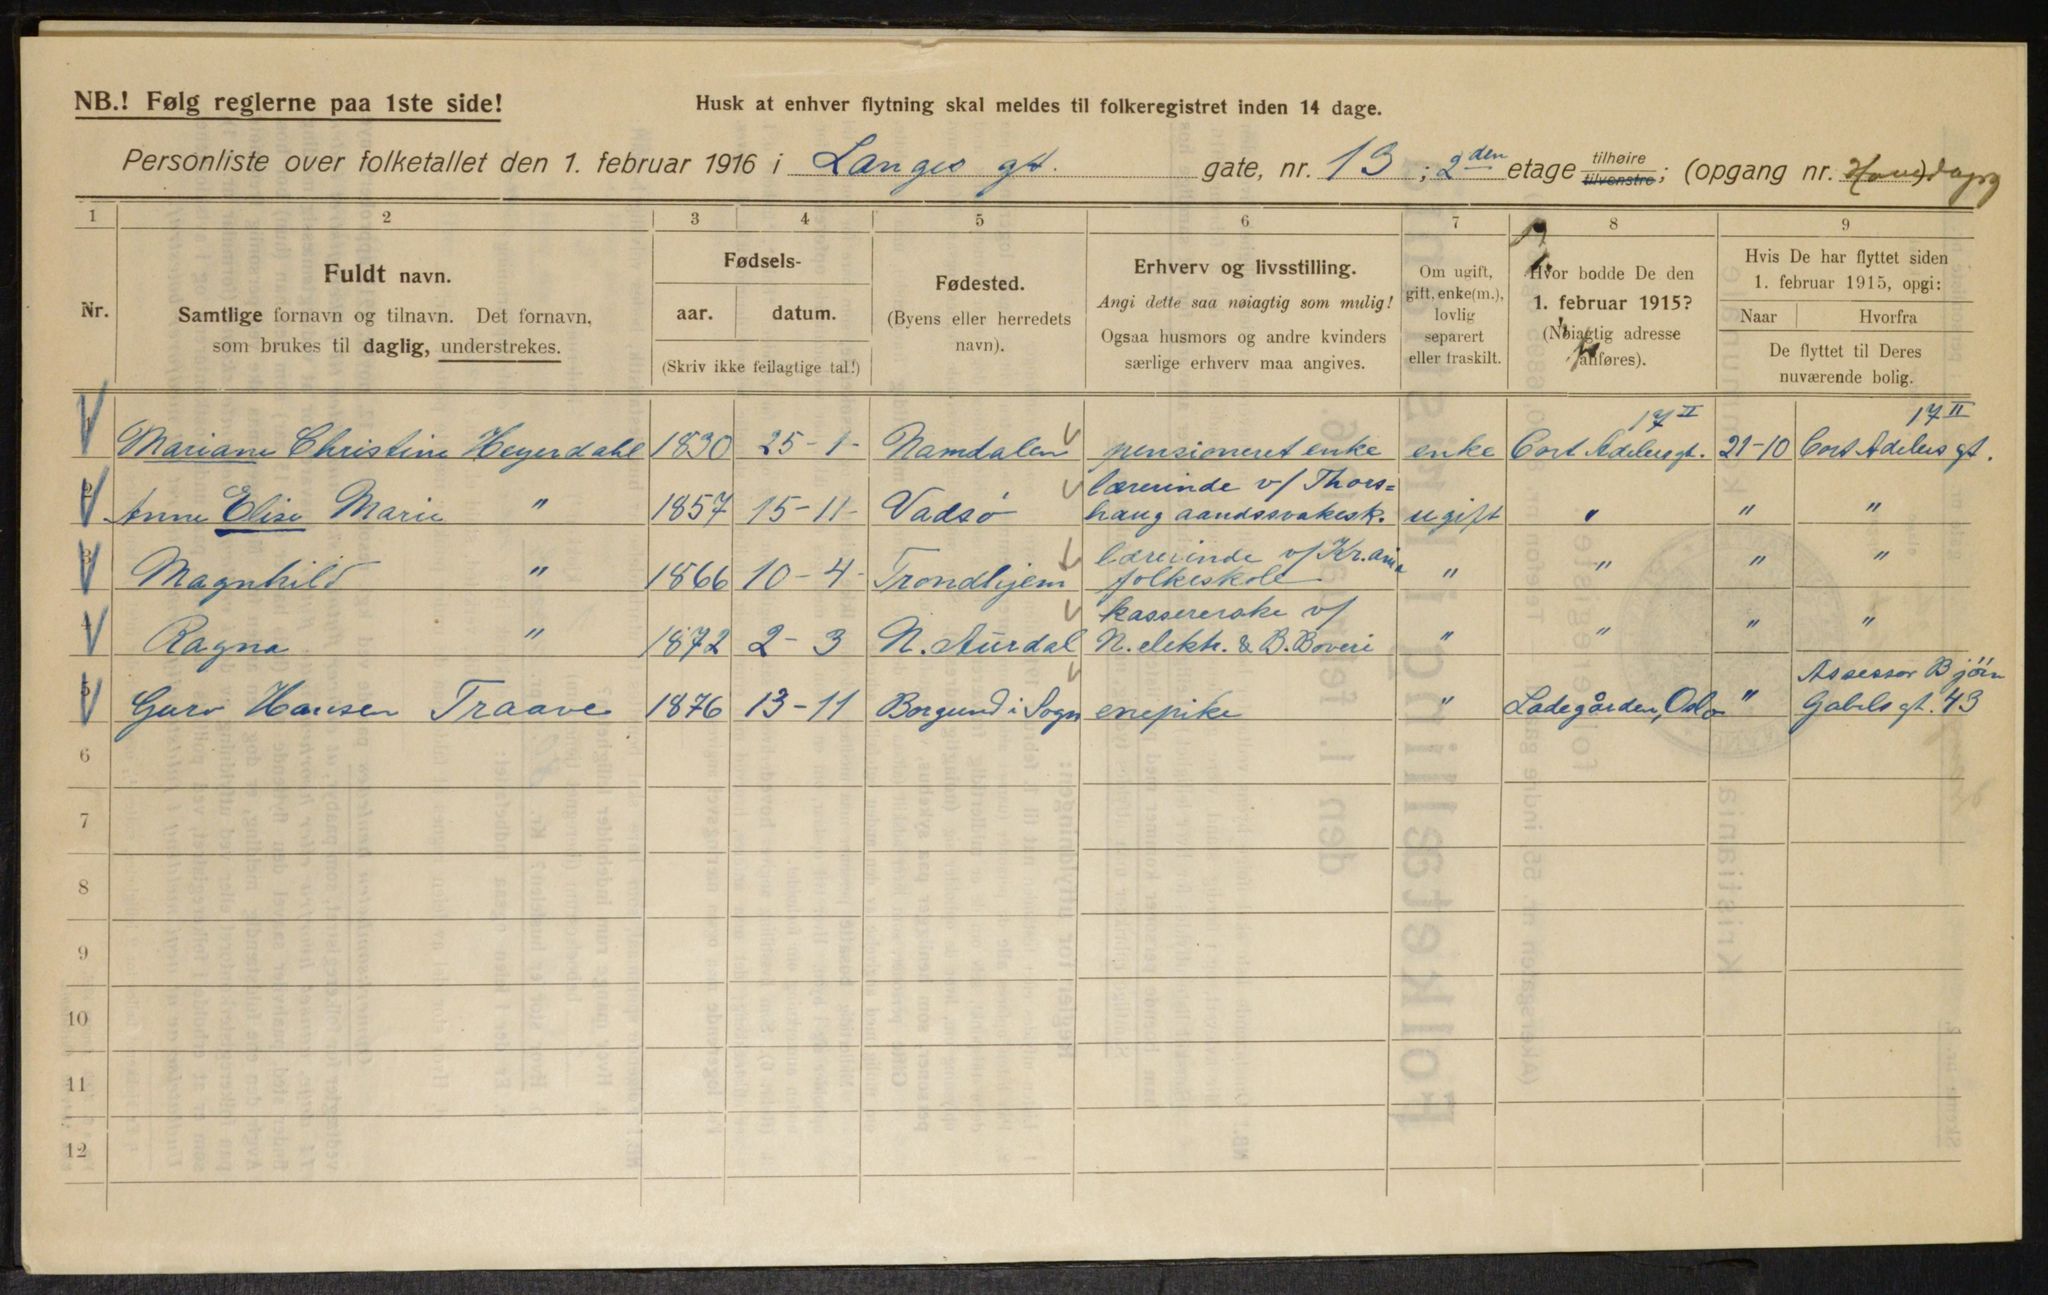 NB.! Følg reglerne paa 1ste side!
Husk at enhver flytning skal meldes til folkeregistret inden 14 dage.
Personliste over folketallet den 1. februar 1916 i Langes gt. gate, nr. 13 ; 2den etage tilhøire tilvenstre; (opgang nr. )
1 2 3 4 5 6 7 8 9
Nr.
Fuldt navn.
Samtlige fornavn og tilnavn. Det fornavn,
som brukes til daglig, understrekes.
Fødsels-
aar. datum.
(Skriv ikke feilagtige tal!)
Fødested.
(Byens eller herredets
navn).
Erhverv og livsstilling.
Angi dette saa nøiagtig som mulig!
Ogsaa husmors og andre kvinders
særlige erhverv maa angives.
Om ugift,
gift, enke(m.),
lovlig
separert
eller fraskilt.
Hvor bodde De den
1. februar 1915?
(Nøiagtig adresse
anføres).
Hvis De har flyttet siden
1. februar 1915, opgi:
Naar Hvorfra
De flyttet til Deres
nuværende bolig.
Mariane Christine Heyerdahl 1830 25-1- Namdalen pensioneret enke enke Cort Adelersgt. 17 II 21-10 Cort Adelers gt. 17 II
2 Anne Elise Marie " 1857 15-11- Vadsø lærerinde v/ Thors=
haug aandssvakesk. ugift " " "
3 Magnhild " 1866 10-4- Trondhjem lærerinde v/ Kr.ania
folkeskole " " " "
4 Ragna " 1872 2-3 N. Aurdal kassererske v/
N. elektr. & B. Boveri " " " "
5 Guro Hansen Traave 1876 13-11 Borgund i Sogn enepike " Ladegården, Oslo " Assessor Bjørn
Gabels gt. 43
6
7
8
9
10
11
12